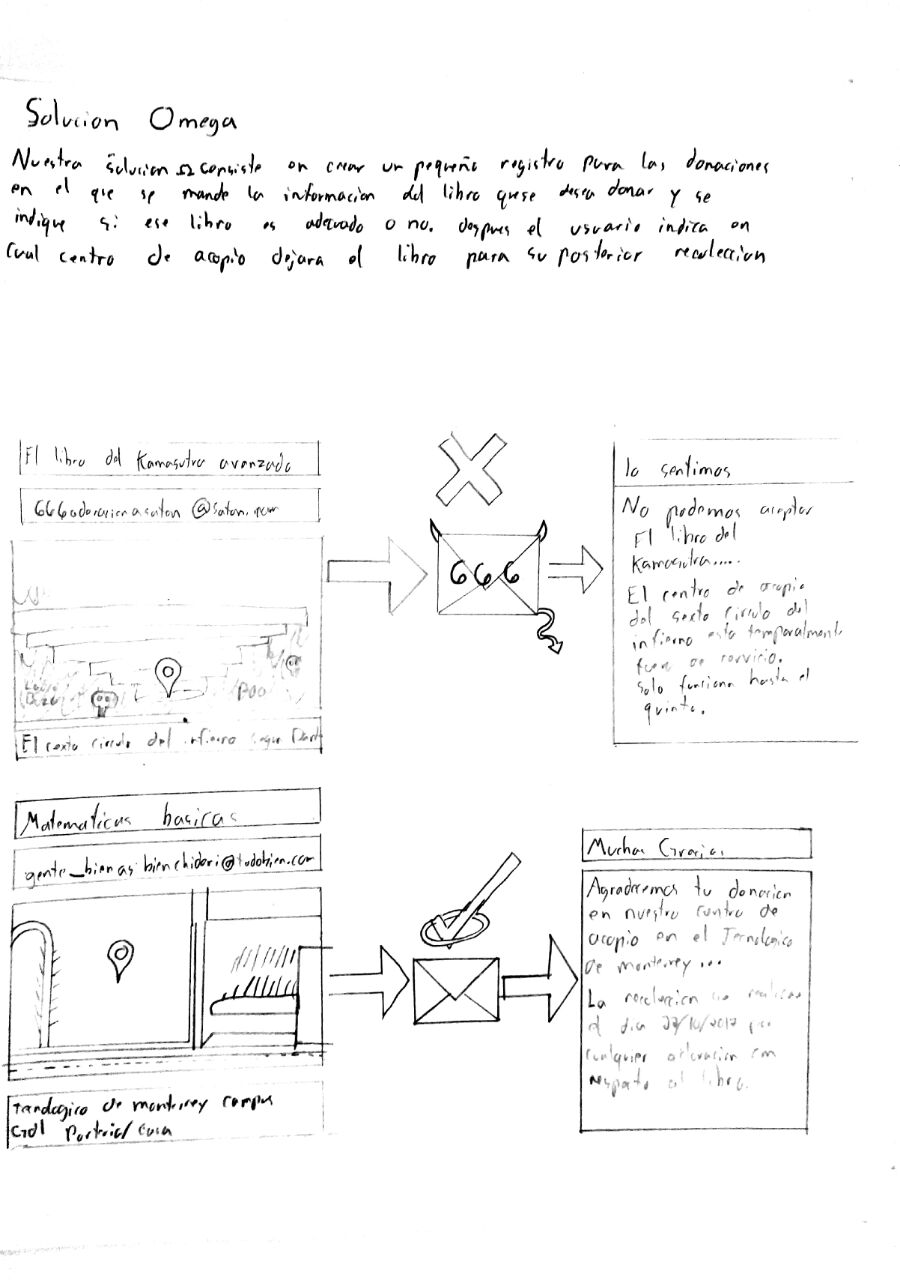 Solucion Omega
Nuestra solucion Ω consiste en crear un pequeño registro para las donaciones
en el que se mande la informacion del libro que se desea donar y se
indique si ese libro es adecuado o no. despues el usuario indica en
Cual centro de acopio dejara el libro para su posterior recoleccion
El libro del Kamasutra avanzado
666adoracionasatan@satan.com
El sexto circulo del infierno segun Dante
666
lo sentimos
No podemos aceptar
El libro del
Kamasutra.....
El centro de acopio
del sexto circulo del
infierno esta temporalmente
fuera de servicio.
Solo funciona hasta el
quinto.
Matematicas basicas
gente_bienasibienchidori@todobien.com
Tecnologico de monterrey campus
GDL
Muchas Gracias
Agradecemos tu donacion
en nuestro centro de
acopio en el Tecnologico
de monterrey...
La recoleccion se realizara
el dia
cualquier con
respecto al libro.